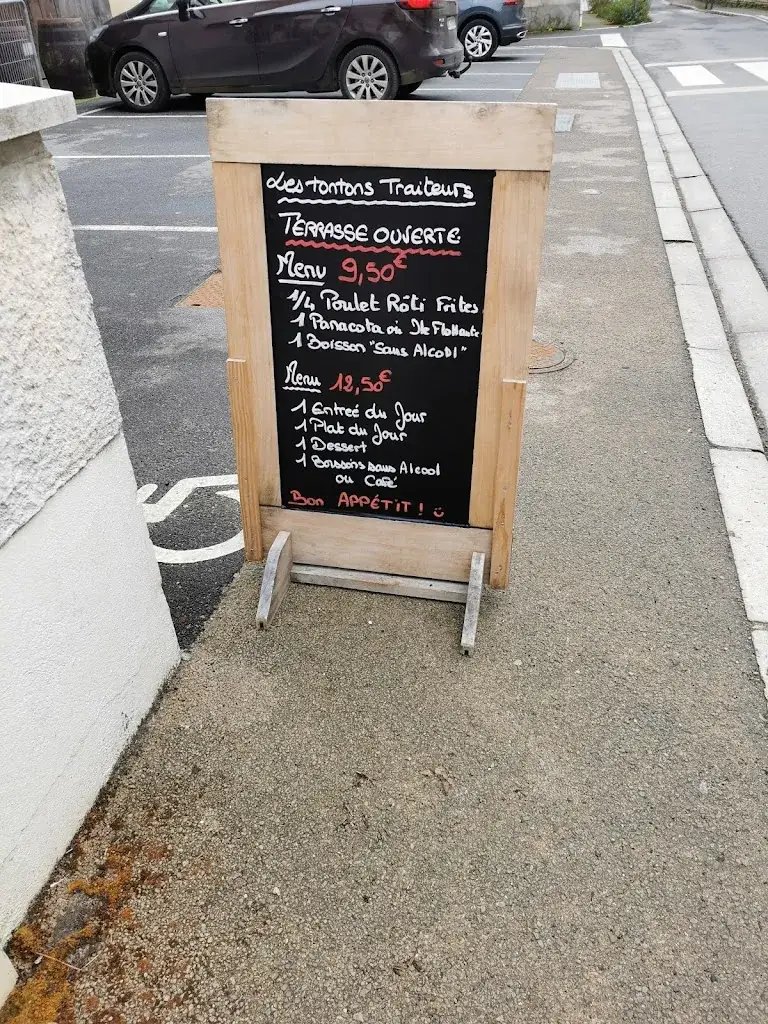 Les tontons Traiteurs
TERRASSE OUVERTE
Menu 9,50€
1/4 Poulet Rôti Frites
1 Panacota où Ile Flottante
1 Boisson "Sans Alcool"
Menu 12,50€
1 Entreé du Jour
1 Plat du Jour
1 Dessert
1 Boissons sans Alcool
ou Café
Bon APPÉTIT !